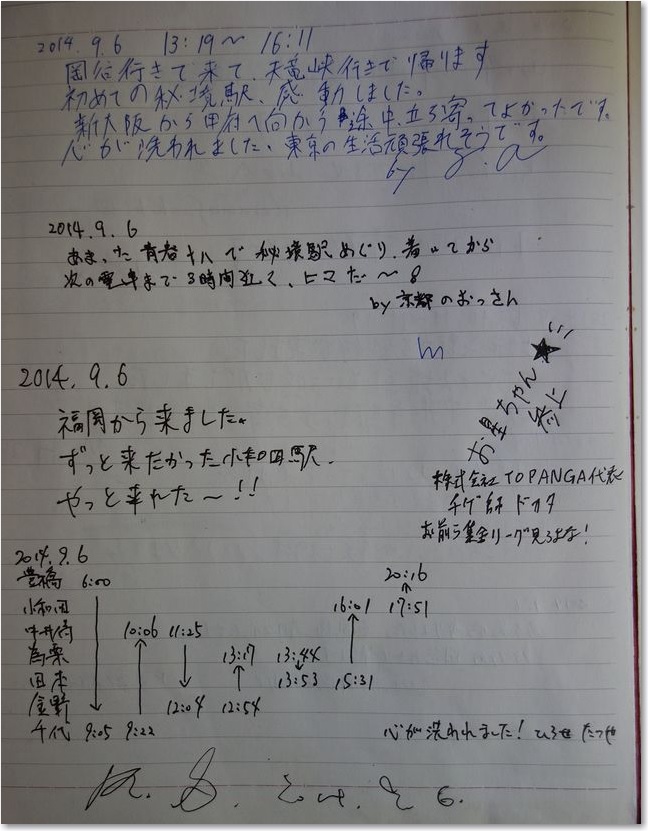 2014.9.6 13:19〜16:11
岡谷行きで来て、天竜峡行きで帰ります
初めての秘境駅、感動しました。
新大阪から甲府へ向かう途中、立ち寄ってよかったです。
心が洗われました、東京の生活頑張れそうです。
by
2014.9.6
あまった青春十八で秘境駅めぐり、着いてから
次の電車まで3時間近く、ヒマだ〜
by 京都のおっさん
2014.9.6
福岡から来ました。
ずっと来たかった小和田駅、
やっと来れた〜!!
お星ちゃん★
参上
株式会社TOPANGA代表
チゲ師 ドオタ
お前ら集金リーグ見ろよな!
2014.9.6
豊橋 6:00 20:16
小和田 16:01 17:51
中井侍 10:06 11:25
為栗 13:17 13:44
田本 13:53 15:31
金野 12:04 12:54
千代 9:05 9:22
心が洗われました! ひろせ たつや